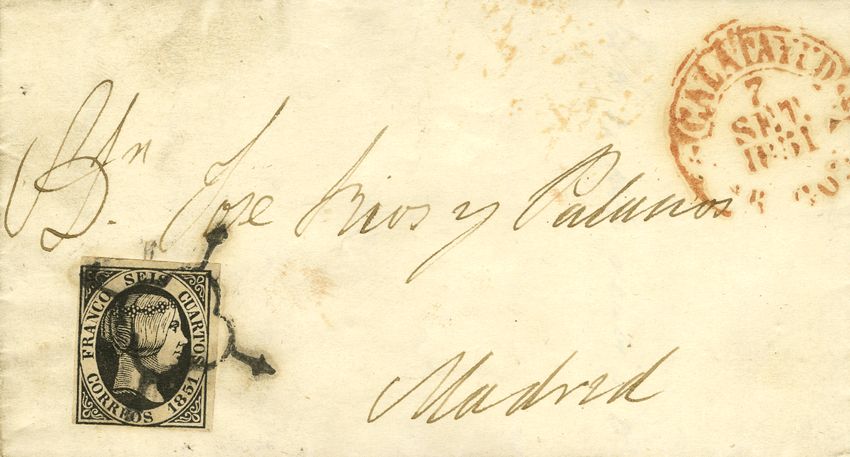 CALATAYUD
7
SET.
1851
Sr. Dn Jose Rios y Palacios
FRANCO SEIS CUARTOS
CORREOS 1851
Madrid